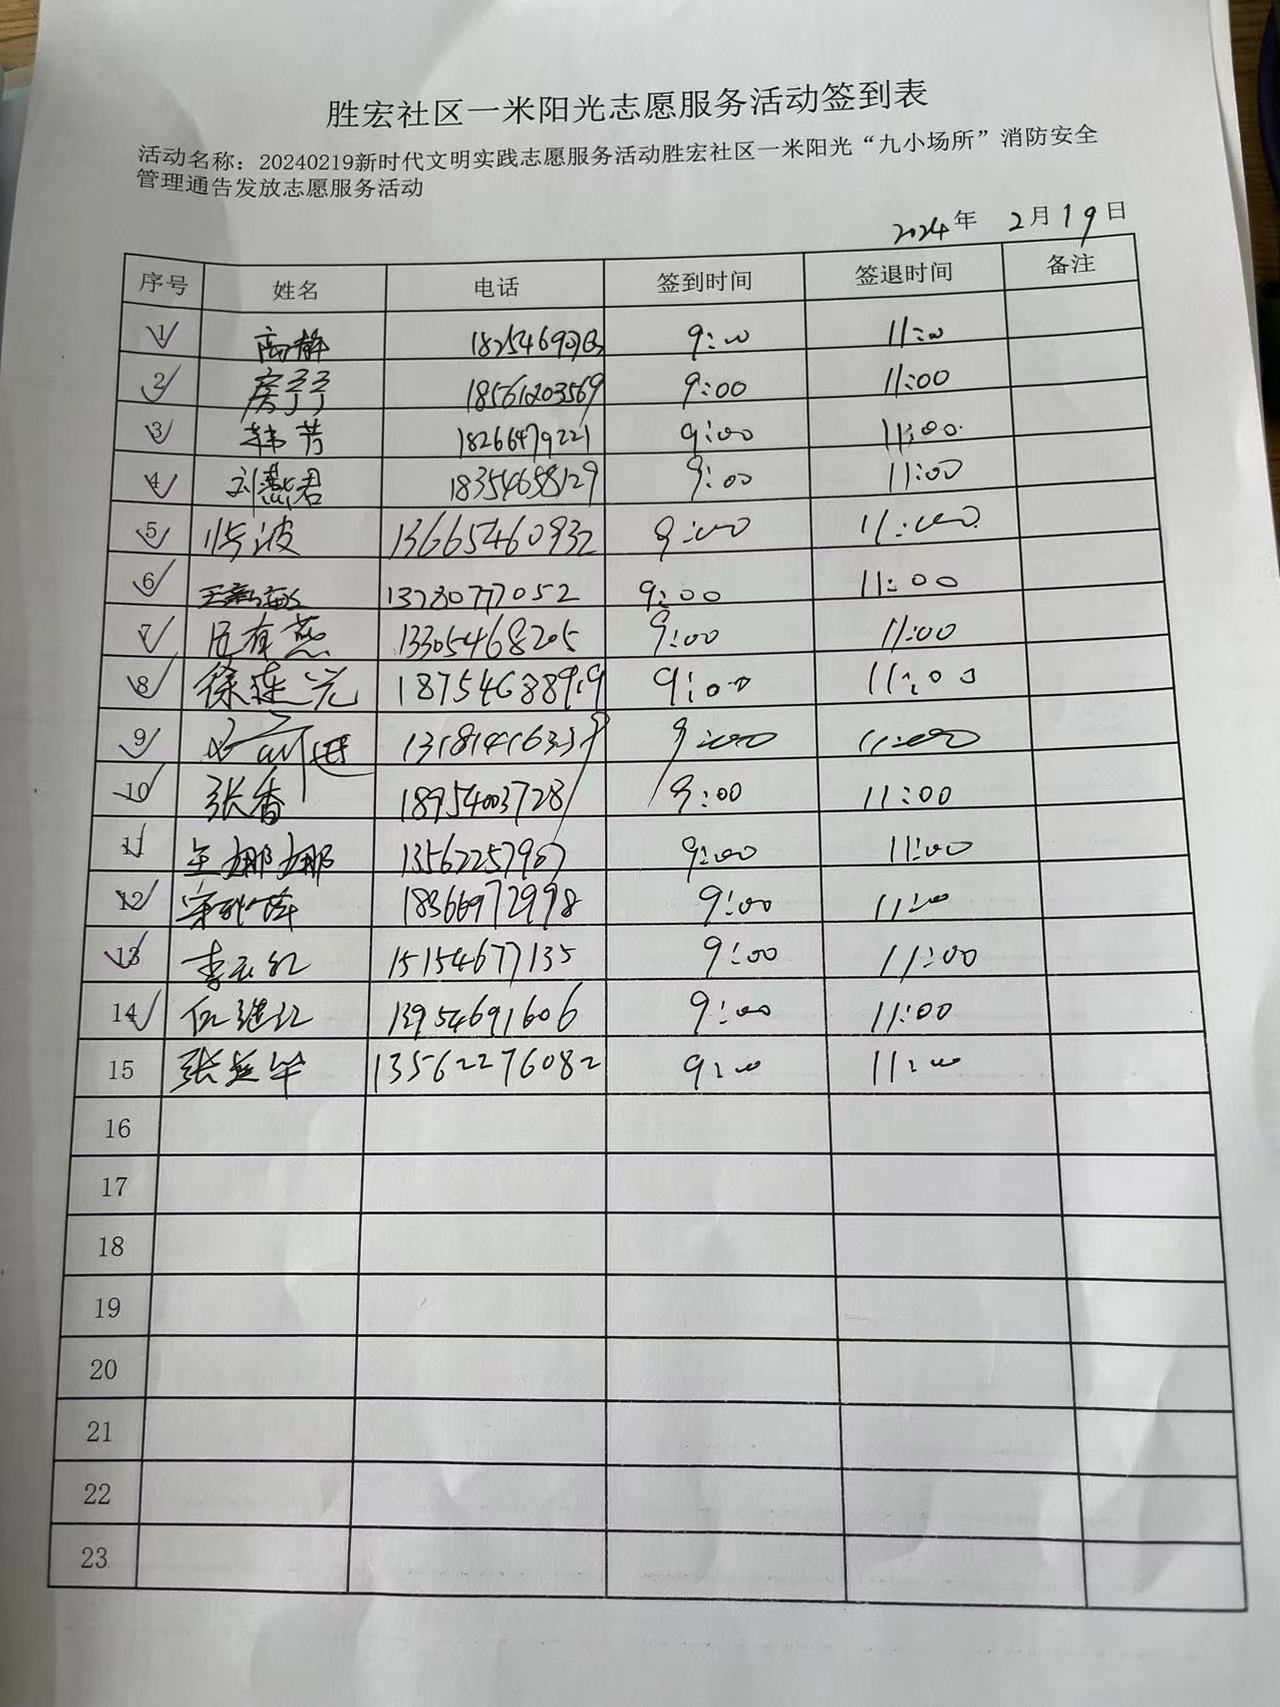 胜宏社区一米阳光志愿服务活动签到表
活动名称：20240219新时代文明实践志愿服务活动胜宏社区一米阳光“九小场所”消防安全
管理通告发放志愿服务活动
2024年 2月19日
序号 姓名 电话 签到时间 签退时间 备注
1 高静 9:00 11:00
2 房孑孑 18561203569 9:00 11:00
3 韩芳 18266479221 9:00 11:00
4 刘燕君 18354658129 9:00 11:00
5 张波 13665460932 9:00 11:00
6 13780777052 9:00 11:00
7 有燕 13305468205 9:00 11:00
8 徐连光 18754688919 9:00 11:00
9 9:00 11:00
10 张香 18954003728 9:00 11:00
11 王娜娜 13562257907 9:00 11:00
12 18366972998 9:00 11:00
13 李云红 15154677135 9:00 11:00
14 任继江 13954691606 9:00 11:00
15 张延华 13562276082 9:00 11:00
16
17
18
19
20
21
22
23